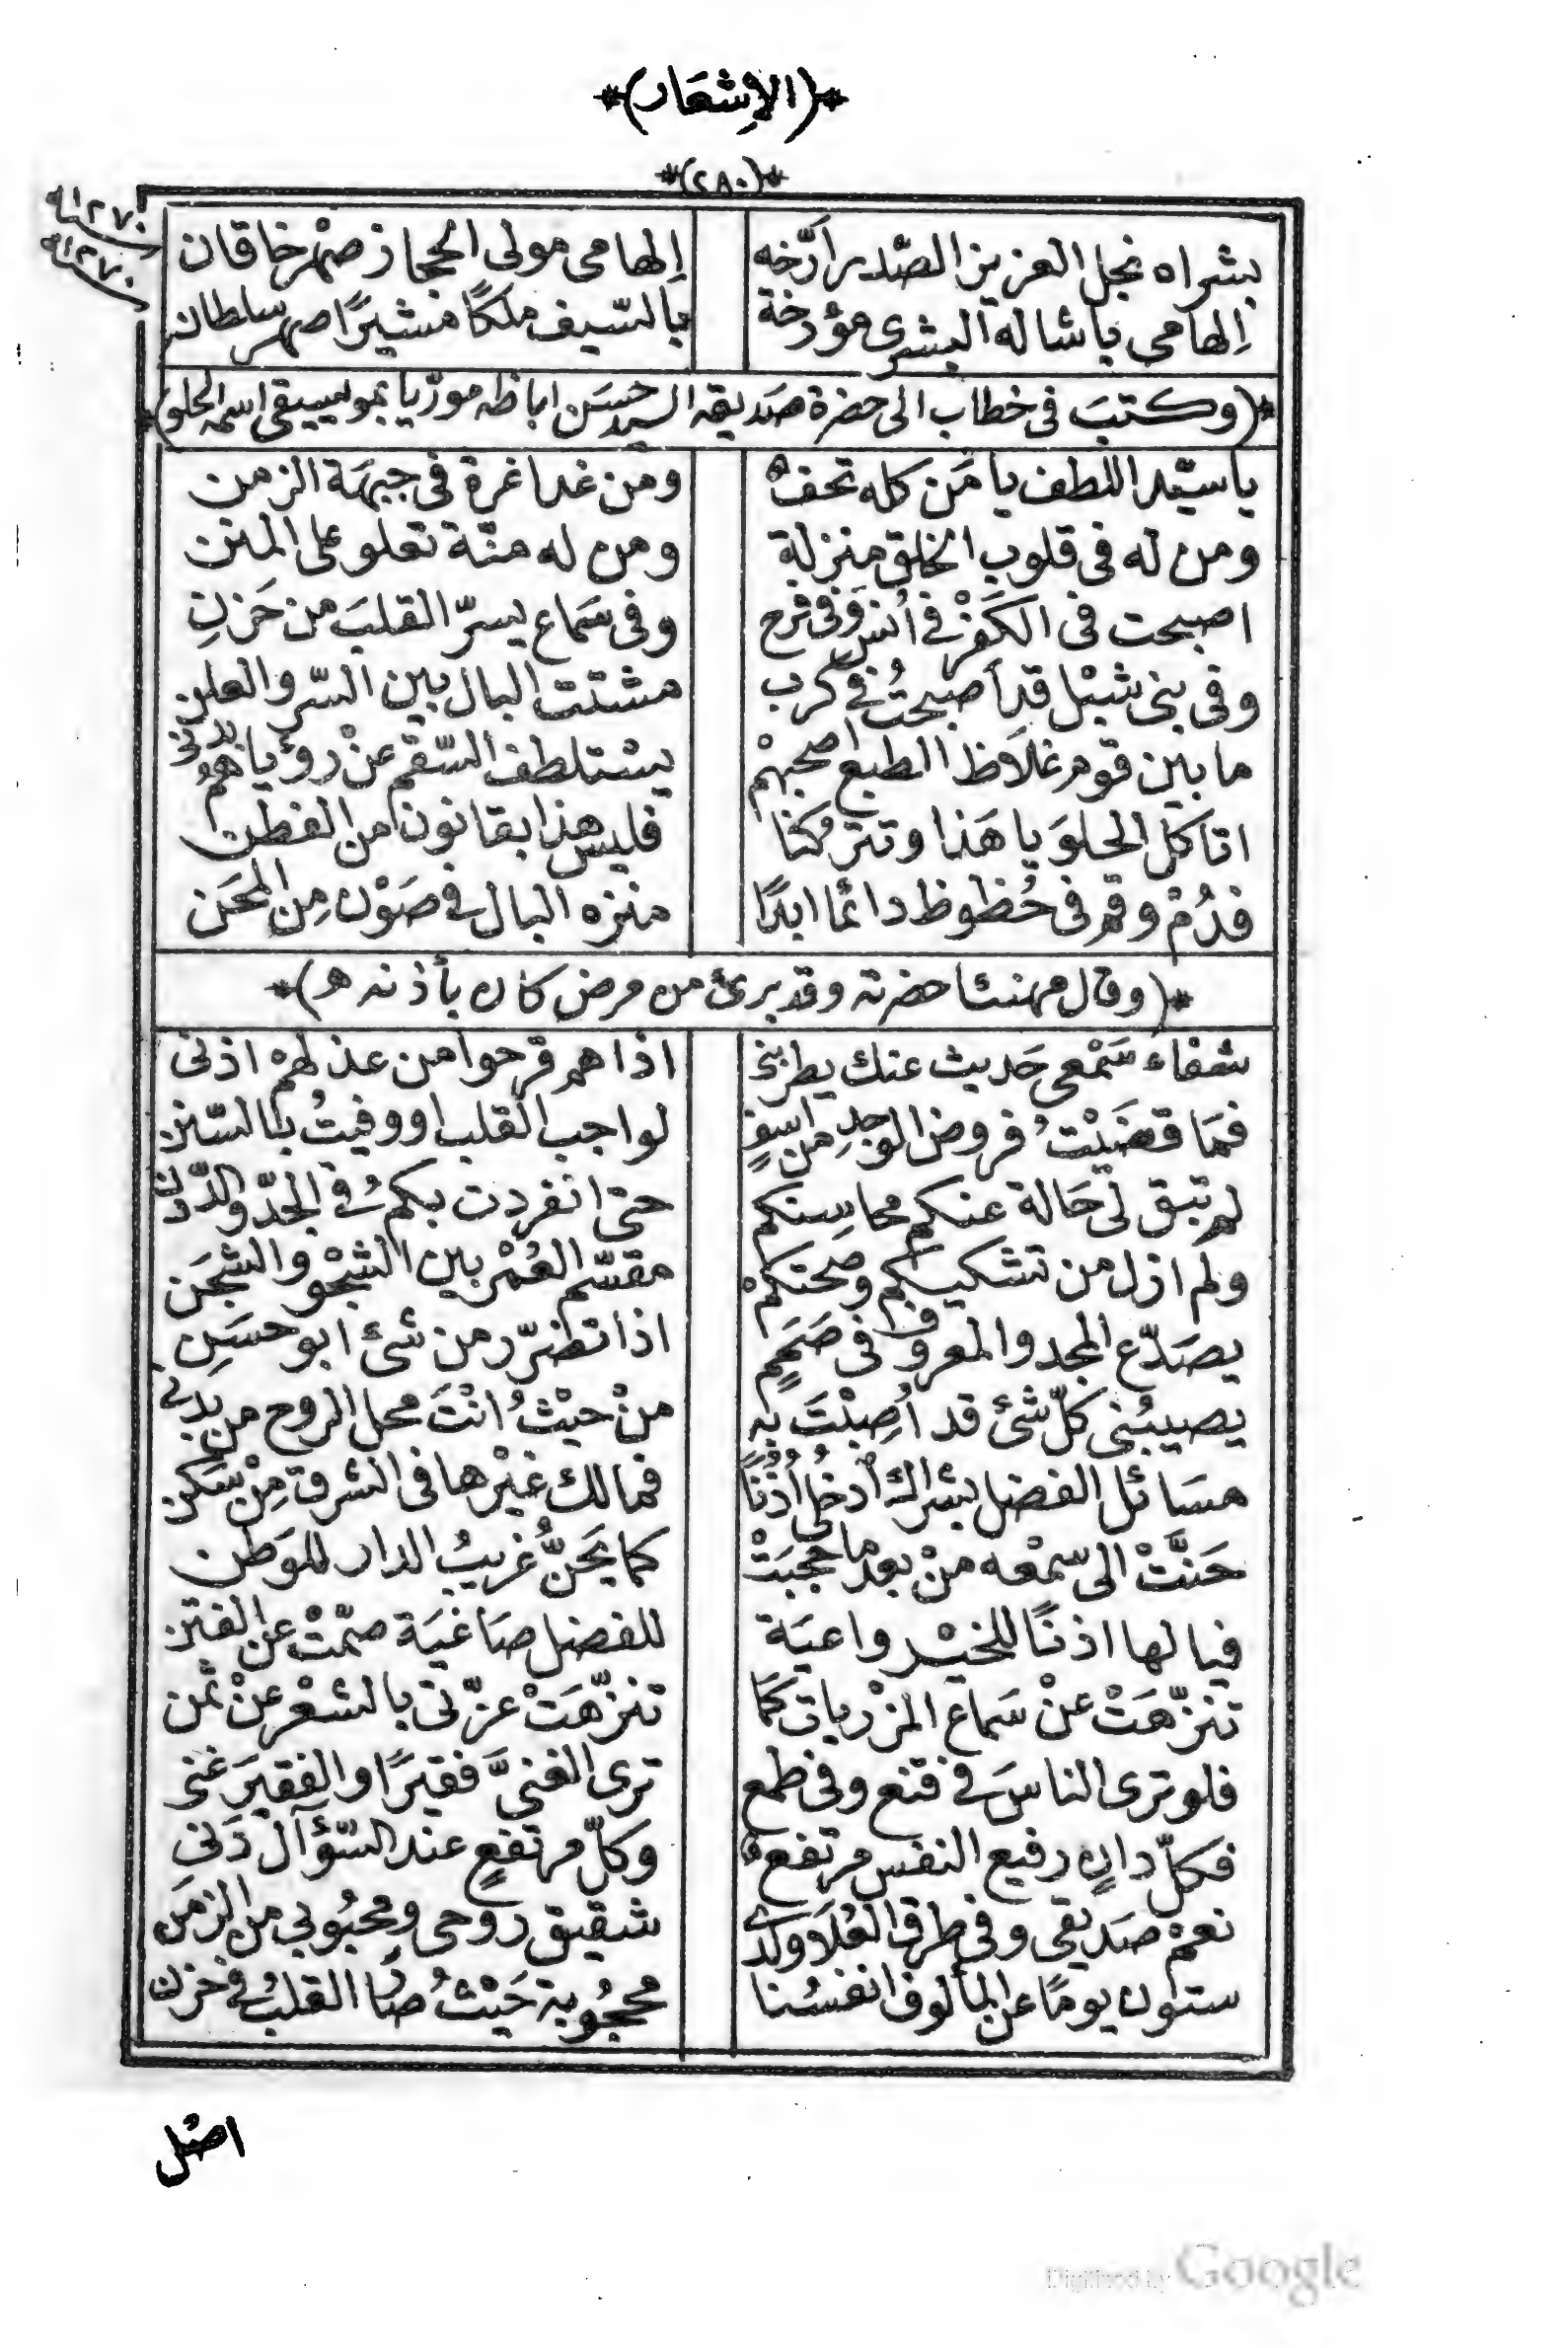 *(الإشعار)*
*(٢٨٠)*
سنة ١٢٧٠
سنة ١٢٧٠
بشراه نجل العزيز الصّدر أرّخه إلهامى مولى الحجاز صهر خاقان
إلهامى باشا له البشرى مؤرخة بالسّيف ملكًا مشيرًا صهر سلطان
*(وكتبَ فى خطاب الى حضرة صَديقه السيد حسَن اباظه مورّيا بموسيقى اسمه الحلو)*
يا سيّد اللطف يا مَن كله تحفٌ ومن غدا غرة فى جبهَة الزمن
ومن له فى قلوب الخلق منزلة ومن له منّة تعلو على المنن
اصبحت فى الكَفْر فى أنس وفى فرح وفى سَماع يسرّ القلبَ من حَزنِ
وفى بنى شبْل قد أصبحتُ فى كرب مشتت البال بين السّر والعلن
ما بين قوم غلاَظ الطبع اصحبهْم يسْتلطف السّقم عنْ رؤياهمُ بدنى
اتاكل الحلوَ يا هَذا وتتركنا فليس هذا بقانون من الفطن
فدُمْ وقم فى حُظوظ دائمًا ابدًا منزه البال فى صَوْن مِن المحَن
*(وقال مهنئا حضرته وقد برئ من مرض كان بأذنه هـ)*
شفاء سَمْعى حَديث عنك يطربنى اذا هم قرحوا من عذلهمْ اذنى
فمَا قضَيْتُ فروض الوجدِ من اسفٍ لواجب القلب او وفيتُ بالسّنن
لم تبق لى حَالة عنكم محاسِنكم حتى انفردت بكمُ فى الجدّ والدّدن
ولم ازل من تشكيكم وصحتكمْ مقسّم العُمْر بين الشجْو والشجَن
يصَدّع المجد والمعروف فى صَمَمٍ اذا تضرّر من شئ ابو حسَنِ
يصيبُنى كلّ شئ قد أُصِبْتَ به منْ حيْثُ انْتَ محل الروح من بدنى
مسَائل الفضل بشراك أدخلى أُذُنًا فمالك غيْرها فى الشرق مِنْ سَكن
حَنَّتْ الى سمْعه منْ بعد ما حجبَتْ كما يَحَنُّ غريبُ الدار للوَطن
فيا لها اذنًا للخيْر واعيَة للفضل صَاغيَة صمّتْ عن الفتن
تنزّهَتْ عنْ سَماع المزْريات كمَا تنزّهَتْ عزّتى بالشعْر عنْ ثمَن
فلو ترى الناسَ فى قنع وفى طمع ترى الغنىَّ فقيرًا والفقيرَ غنى
فكلّ دانٍ رفيع النفس مرتفعٌ وكلّ مرتفعٍ عند السّؤآل دَنى
نعمْ صَديقى وفى طرق العُلاَ ولدى شقيق روحى ومحبُوبى من الزمَن
ستون يومًا عن المألوف انفسُنا محجُوبة حَيْثُ صَار القلبُ فى حزن
اصْل
Digitized by Google